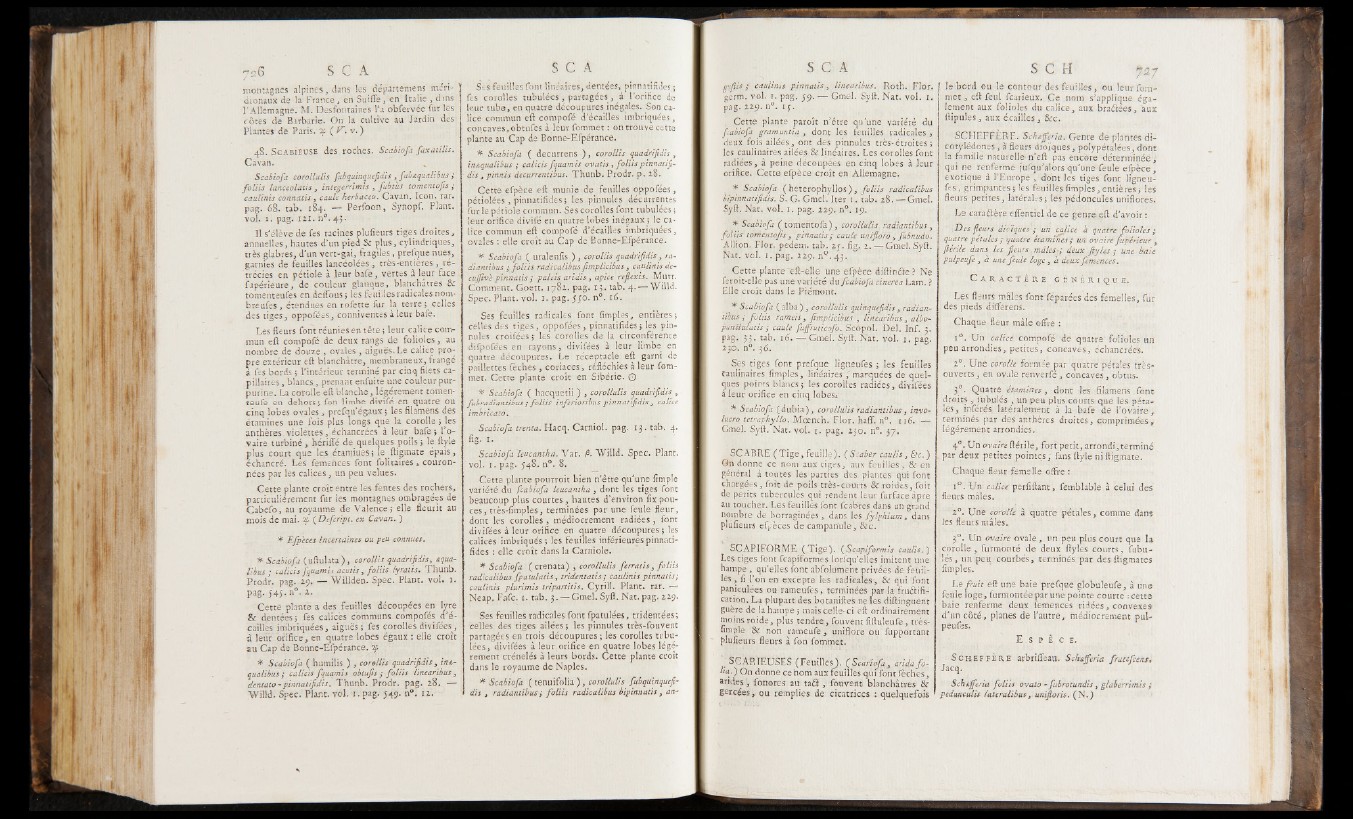 726 S C A
montagnes alpines, dans les départemens méri-
dionaux de la France, en Suisse, en Italie, dans
l'Allemagne. M. Desfontaines l'a observée sur les
côtes de Barbarie. On la cultive au Jardin des
Plantes de Paris. ♃ (V. v.)
48. SCABIEUSE des roches. Scabiosa saxatilis.
Cavan.
Scabiosa corollulis subquinquefidis, subæqualibus;
foliis lanceolatis, integerrimis, subtùs tomentosis;
caulinis connatis, caule herbaceo. Cavan. Icon. rar.
pag. 68. tab. 184. — Persoon, Synops. Plant.
vol. 1. pag. 121. n°. 43.
Il s'élève de ses racines plusieurs tiges droites,
annuelles, hautes d'un pied & plus, cylindriques,
très-glabres, d'un vert-gai, fragiles, presque nues,
garnies de feuilles lancéolées, très-entières, ré-
trécies en pétiole à leur base, vertes à leur face
supérieure, de couleur glauque, blanchâtres &
tomenteuses en dessous; les feuilles radicales nom-
breuses, étendues en rosette sur la terre; celles
des tiges, opposées, conniventes à leur base.
Les fleurs sont réunies en tête; leur calice com-
mun est composé de deux rangs de folioles, au
nombre de douze, ovales, aiguës. Le calice pro-
pre extérieur est blanchâtre, membraneux, frangé
à ses bords; l'intérieur terminé par cinq filets ca-
pillaires, blancs, prenant ensuite une couleur pur-
purine. La corolle est blanche, légérement tomen-
teuse en dehors; son limbe divisé en quatre ou
cinq lobes ovales, presqu'égaux; les filamens des
étamines une fois plus longs que la corolle; les
anthères violettes, échancrées à leur base; l'o-
vaire turbiné, hérissé de quelques poils; le style
plus court que les étamines; le stigmate épais,
échancré. Les semences sont solitaires, couron-
nées par les calices, un peu velues.
Cette plante croît entre les fentes des rochers,
particuliérement sur les montagnes ombragées de
Cabeso, au royaume de Valence; elle fleurit au
mois de mai. ♃ (Descript. ex Cavan.)
* Espèces incertaines ou peu connues.
* Scabiosa (ustulata), corollis quadrifidis, æqua-
libus; calicis squamis acutis, foliis lyratis. Thunb.
Prodr. pag. 29. — Willden. Spec. Plant. vol. 1.
pag. 545. n°. 2.
Cette plante a des feuilles découpées en lyre
& dentées; ses calices communs composés d'é-
cailles imbriquées, aiguës; ses corolles divisées,
à leur orifice, en quatre lobes égaux: elle croît
au Cap de Bonne-Espérance. ♃
* Scabiosa (humilis), corollis quadrifidis, inæ-
qualibus; calicis squamis obtusis; foliis linearibus,
dentato-pinnatifidis. Thunb. Prodr. pag. 28. —
Willd. Spec. Plant. vol. 1. pag. 549. n°. 12.
S C A
Ses feuilles sont linéaires, dentées, pinnatifides;
ses corolles tubulées, partagées, à l'orifice de
leur tube, en quatre découpures inégales. Son ca-
lice commun est composé d'écailles imbriquées,
concaves, obtuses à leur sommet: on trouve cette
plante au Cap de Bonne-Espérance.
* Scabiosa (decurrens), corollis quadrifidis,
inæqualibus; calicis squamis ovatis, foliis pinnatifi-
dis, pinnis decurrentibus. Thunb. Prodr. p. 28.
Cette espèce est munie de feuilles opposées,
pétiolées, pinnatifides; les pinnules décurrentes
sur le pétiole commun. Ses corolles sont tubulées;
leur orifice divisé en quatre lobes inégaux; le ca-
lice commun est composé d'écailles imbriquées,
ovales: elle croît au Cap de Bonne-Espérance.
* Scabiosa (uralensis), corollis quadrifidis, ra-
diantibus; foliis radicalibus simplicibus, caulinis de-
cussivè pinnatis; paleis aridis, apice reflexis. Murr.
Comment. Goett. 1782. pag. 13. tab. 4. — Willd.
Spec. Plant. vol. 1. pag. 550. n°. 16.
Ses feuilles radicales sont simples, entières;
celles des tiges, opposées, pinnatifides; les pin-
nules croisées; les corolles de la circonférence
disposées en rayons, divisées à leur limbe en
quatre découpures. Le réceptacle est garni de
paillettes sèches, coriaces, réfléchies à leur som-
met. Cette plante croît en Sibérie. ☉
* Scabiosa (hacquetii), corollulis quadrifidis,
subradiantibus; foliis inferioribus pinnatifidis, calice
imbricato.
Scabiosa trenta. Hacq. Carniol. pag. 13. tab. 4.
fig. 1.
Scabiosa leucantha. Var. β. Willd. Spec. Plant.
vol. 1. pag. 548. n°. 8.
Cette plante pourroit bien n'être qu'une simple
variété du scabiosa leucantha, dont les tiges sont
beaucoup plus courtes, hautes d'environ six pou-
ces, très-simples, terminées par une seule fleur,
dont les corolles, médiocrement radiées, sont
divisées à leur orifice en quatre découpures; les
calices imbriqués; les feuilles inférieures pinnati-
fides: elle croît dans la Carniole.
* Scabiosa (crenata), corollulis serratis, foliis
radicalibus spatulatis, tridentatis; caulinis pinnatis;
caulinis plurimis tripartitis. Cyrill. Plant. rar. —
Neap. Fasc. 1. tab. 3. — Gmel. Syst. Nat. pag. 229.
Ses feuilles radicales sont spatulées, tridentées;
celles des tiges ailées; les pinnules très-souvent
partagées en trois découpures; les corolles tubu-
lées, divisées à leur orifice en quatre lobes légé-
rement crénelés à leurs bords. Cette plante croît
dans le royaume de Naples.
* Scabiosa (tenuifolia), corollulis subquinquefi-
dis, radiantibus; foliis radicalibus bipinnatis, an-
S C A
gustis; caulinis pinnatis, linearibus. Roth. Flor.
germ. vol. 1. pag. 59. — Gmel. Syst. Nat. vol. 1.
pag. 229. n°. 15.
Cette plante paroît n'être qu'une variété du
scabiosa gramuntia, dont les feuilles radicales,
deux fois ailées, ont des pinnules très-étroites;
les caulinaires ailées & linéaires. Les corolles sont
radiées, à peine découpées en cinq lobes à leur
orifice. Cette espèce croît en Allemagne.
* Scabiosa (heterophyllos), foliis radicalibus
bipinnatifidis. S. G. Gmel. Iter 1. tab. 28. — Gmel.
Syst. Nat. vol. 1. pag. 229. n°. 19.
* Scabiosa (tomentosa), corollulis radiantibus,
foliis tomentosis, pinnatis; caule unifloro, subnudo.
Allion. Flor. pedem. tab. 25. fig. 2. — Gmel. Syst.
Nat. vol. 1. pag. 229. n°. 43.
Cette plante est-elle une espèce distincte? Ne
seroit-elle pas une variété du scabiosa cinerea Lam.?
Elle croît dans le Piémont.
* Scabiosa (alba), corollulis quinquefidis, radian-
tibus, foliis rameis, simplicibus, linearibus, albo-
punctulatis; caule suffruticoso. Scopol. Del. Inf. 3.
pag. 33. tab. 16. — Gmel. Syst. Nat. vol. 1. pag.
230. n°. 36.
Ses tiges sont presque ligneuses; les feuilles
caulinaires simples, linéaires, marquées de quel-
ques points blancs; les corolles radiées, divisées
à leur orifice en cinq lobes.
* Scabiosa (dubia), corollulis radiantibus, invo-
lucro tetraphyllo. Mœnch. Flor. hass. n°. 116. —
Gmel. Syst. Nat. vol. 1. pag. 230. n°. 37.
SCABRE (Tige, feuille). (Scaber caulis, &c.)
On donne ce nom aux tiges, aux feuilles, & en
général à toutes les parties des plantes qui sont
chargées, soit de poils très-courts & roides, soit
de petits tubercules qui rendent leur surface âpre
au toucher. Les feuilles sont scabres dans un grand
nombre de borraginées, dans les sylphium, dans
plusieurs espèces de campanule, &c.
SCAPIFORME (Tige). (Scapiformis caulis.)
Les tiges sont scapiformes lorsqu'elles imitent une
hampe, qu'elles sont absolument privées de feuil-
les, si l'on en excepte les radicales, & qui sont
paniculées ou rameuses, terminées par la fructifi-
cation. La plupart des botanistes ne les distinguent
guère de la hampe; mais celle-ci est ordinairement
moins roide, plus tendre, souvent fistuleuse, très-
simple & non rameuse, uniflore ou supportant
plusieurs fleurs à son sommet.
SCARIEUSES (Feuilles). (Scariosa, arida fo-
lia.) On donne ce nom aux feuilles qui sont sèches,
arides, sonores au tact, souvent blanchâtres &
gercées, ou remplies de cicatrices: quelquefois
S C H 727
le bord ou le contour des feuilles, ou leur som-
met, est seul scarieux. Ce nom s'applique éga-
lement aux folioles du calice, aux bractées, aux
stipules, aux écailles, &c.
SCHEFFÈRE. Schæfferia. Genre de plantes di-
cotylédones, à fleurs dioïques, polypétalées, dont
la famille naturelle n'est pas encore déterminée,
qui ne renferme jusqu'alors qu'une seule espèce,
exotique à l'Europe, dont les tiges sont ligneu-
ses, grimpantes; les feuilles simples, entières; les
fleurs petites, latérales; les pédoncules uniflores.
Le caractère essentiel de ce genre est d'avoir:
Des fleurs dioïques; un calice à quatre folioles;
quatre pétales; quatre étamines; un ovaire supérieur,
stérile dans les fleurs mâles; deux styles; une baie
pulpeuse, à une seule loge, à deux semences.
CARACTÈRE GÉNÉRIQUE.
Les fleurs mâles sont séparées des femelles, sur
des pieds différens.
Chaque fleur mâle offre:
1°. Un calice composé de quatre folioles un
peu arrondies, petites, concaves, échancrées.
2°. Une corolle formée par quatre pétales très-
ouverts, en ovale renversé, concaves, obtus.
3°. Quatre étamines, dont les filamens sont
droits, subulés, un peu plus courts que les péta-
les, insérés latéralement à la base de l'ovaire,
terminés par des anthères droites, comprimées,
légérement arrondies.
4°. Un ovaire stérile, fort petit, arrondi, terminé
par deux petites pointes, sans style ni stigmate.
Chaque fleur femelle offre:
1°. Un calice persistant, semblable à celui des
fleurs mâles.
2°. Une corolle à quatre pétales, comme dans
les fleurs mâles.
3°. Un ovaire ovale, un peu plus court que la
corolle, surmonté de deux styles courts, subu-
lés, un peu courbés, terminés par des stigmates
simples.
Le fruit est une baie presque globuleuse, à une
seule loge, surmontée par une pointe courte: cette
baie renferme deux semences ridées, convexes
d'un côté, planes de l'autre, médiocrement pul-
peuses.
ESPÈCE.
SCHEFFÈRE arbrisseau. Schæfferia frutescens.
Jacq.
Schæfferia foliis ovato-subrotundis, glaberrimis;
pedunculis lateralibus, unifloris. (N.)